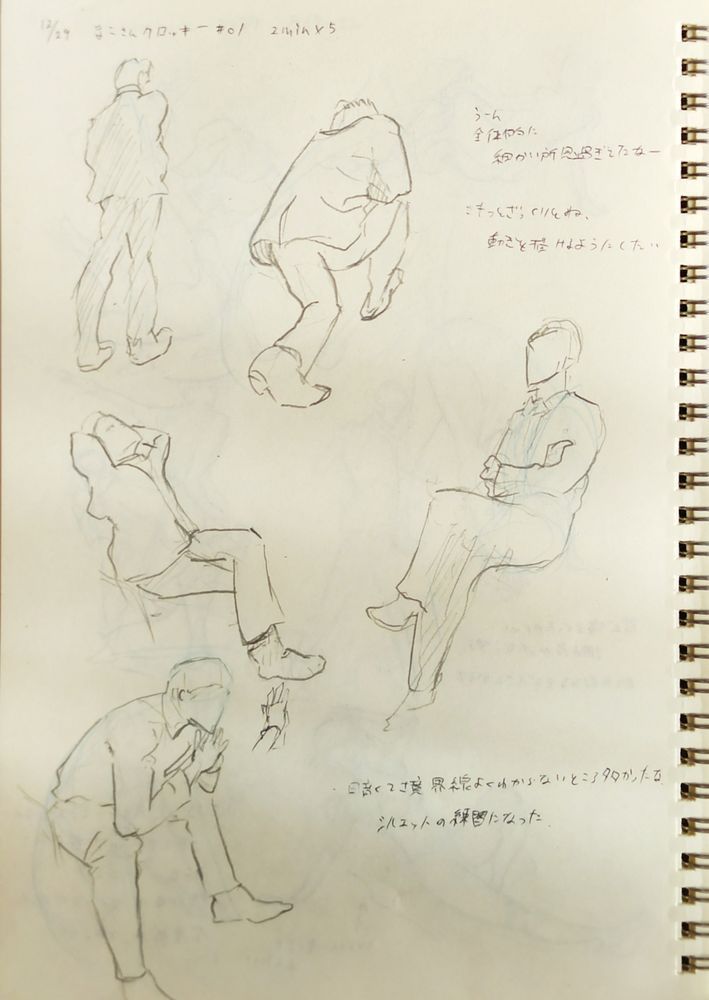 12/29 まこさんクロッキー #01 2min×5
うーん
全体的に
細かい所見過ぎてたなー
もっとざっくりとね、
動きを描けるようにしたい
暗くて境界線よくわからないところ多かったな
シルエットの練習になった。